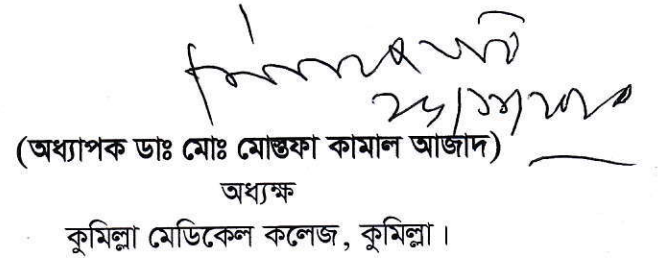 (অধ্যাপক ডাঃ মোঃ মোস্তফা কামাল আজাদ)
অধ্যক্ষ
কুমিল্লা মেডিকেল কলেজ, কুমিল্লা।